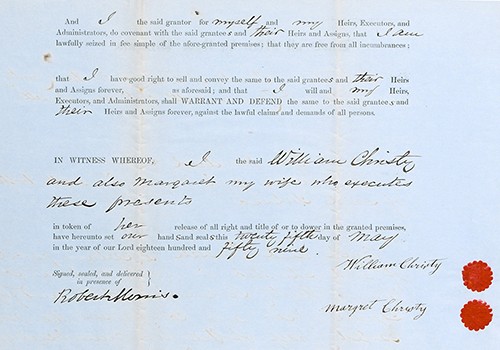 And I the said grantor for myself and my Heirs, Executors, and
Administrators, do covenant with the said grantees and their Heirs and Assigns, that I am
lawfully seized in fee simple of the afore-granted premises; that they are free from all incumbrances;
that I have good right to sell and convey the same to the said grantees and their Heirs
and Assigns forever, as aforesaid; and that I will and my Heirs,
Executors, and Administrators, shall WARRANT AND DEFEND the same to the said grantees and
their Heirs and Assigns forever, against the lawful claims and demands of all persons.
IN WITNESS WHEREOF, I the said William Christy
and also Margaret my wife who executes
these presents
in token of her release of all right and title of or to dower in the granted premises,
have hereunto set our hands and seals this twenty fifth day of May
in the year of our Lord eighteen hundred and fifty nine.
William Christy
Signed, sealed, and delivered
in presence of
Robert Morris.
Margret Christy